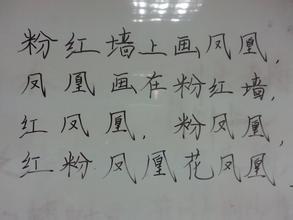 粉红墙上画凤凰,
凤凰画在粉红墙,
红凤凰,粉凤凰,
红粉凤凰花凤凰